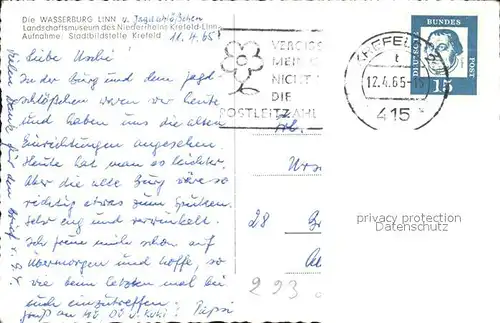 Die WASSERBURG LINN u. Jagdschlößchen
Landschaftsmuseum des Niederrheins Krefeld-Linn
Aufnahme: Stadtbildstelle Krefeld
11.4.65
Liebe Uschi!
In der Burg und dem Jagd-
schlößchen waren wir heute
und haben uns die alten
Einrichtungen angesehen.
Heute hat man es leichter,
aber die alte Burg wäre so
richtig etwas zum Spuken.
Sehr eng und verwinkelt.
Ich freue mich schon auf
übermorgen und hoffe, so
wie beim letzten mal bei
euch einzutreffen.
Gruß an Papsi
Vielen Dank für den Brief v. 9.4.
VERGISS
MEIN
NICHT
DIE
POSTLEITZAHL
KREFELD
t
12.4.65-15
415
DEUTSCHE
BUNDES
POST
15
28
223
privacy protection
Datenschutz